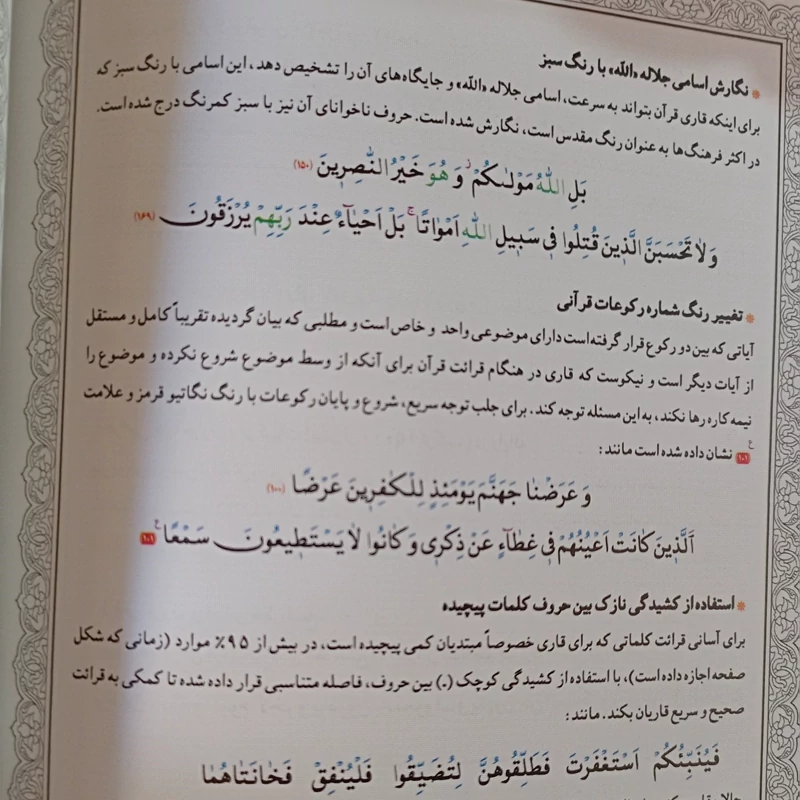 * نگارش اسامی جلاله «الله» با رنگ سبز
برای اینکه قاری قرآن بتواند به سرعت، اسامی جلاله «الله» و جایگاه‌های آن را تشخیص دهد، این اسامی با رنگ سبز که
در اکثر فرهنگ‌ها به عنوان رنگ مقدس است، نگارش شده است. حروف ناخوانای آن نیز با سبز کمرنگ درج شده است.
بَلِ اللهُ مَوْلىٰكُمْ وَ هُوَ خَيْرُ النّٰصِرينَ (۱۵۰)
وَ لا تَحْسَبَنَّ الَّذينَ قُتِلُوا في سَبيلِ اللهِ اَمْواتًا ۚ بَلْ اَحْياءٌ عِنْدَ رَبِّهِمْ يُرْزَقُونَ (۱۶۹)
* تغییر رنگ شماره رکوعات قرآنی
آیاتی که بین دو رکوع قرار گرفته است دارای موضوعی واحد و خاص است و مطلبی که بیان گردیده تقریباً کامل و مستقل
از آیات دیگر است و نیکوست که قاری در هنگام قرائت قرآن برای آنکه از وسط موضوع شروع نکرده و موضوع را
نیمه‌کاره رها نکند، به این مسئله توجه کند. برای جلب توجه سریع، شروع و پایان رکوعات با رنگ نگاتیو قرمز و علامت
ع ۱۰۱ نشان داده شده است مانند:
وَ عَرَضْنا جَهَنَّمَ يَوْمَئِذٍ لِلْكٰفِرينَ عَرْضًا (۱۰۰)
اَلَّذينَ كانَتْ اَعْيُنُهُمْ في غِطاءٍ عَنْ ذِكْري وَ كانُوا لا يَسْتَطيعُونَ سَمْعًا ع ۱۰۱
* استفاده از کشیدگی نازک بین حروف کلمات پیچیده
برای آسانی قرائت کلماتی که برای قاری خصوصاً مبتدیان کمی پیچیده است، در بیش از ۹۵٪ موارد (زمانی که شکل
صفحه اجازه داده است)، با استفاده از کشیدگی کوچک (ـ) بین حروف، فاصله متناسبی قرار داده شده تا کمکی به قرائت
صحیح و سریع قاریان بکند. مانند:
فَيُنَبِّئُكُمْ اَسْتَغْفَرْتَ فَطَلِّقُوهُنَّ لِتُضَيِّقُوا فَلْيُنْفِقْ فَخانَتاهُما